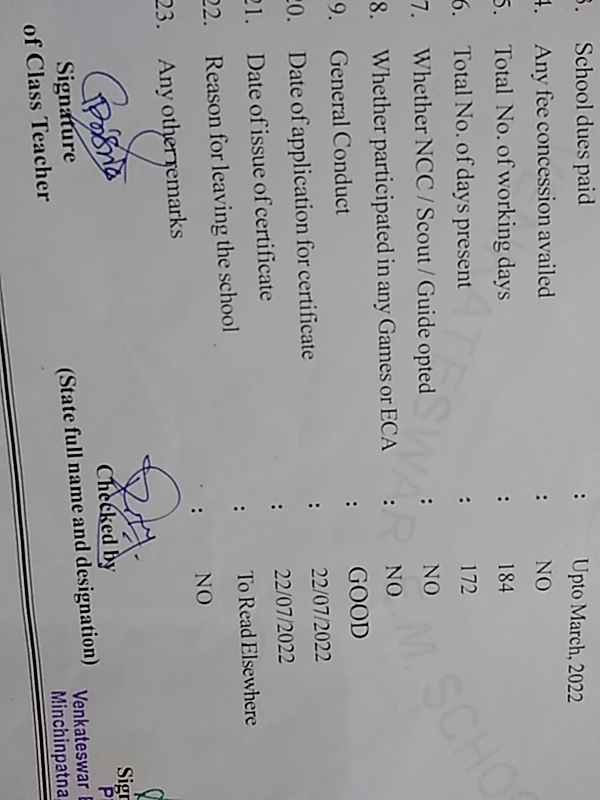 3. School dues paid : Upto March, 2022
4. Any fee concession availed : NO
5. Total No. of working days : 184
6. Total No. of days present : 172
7. Whether NCC / Scout / Guide opted : NO
8. Whether participated in any Games or ECA : NO
9. General Conduct : GOOD
20. Date of application for certificate : 22/07/2022
21. Date of issue of certificate : 22/07/2022
22. Reason for leaving the school : To Read Elsewhere
23. Any other remarks : NO
Signature
of Class Teacher
Checked by
(State full name and designation)
Sign
Venkateswar
Minchinpatna
VENKATESWAR E.M. SCHOO